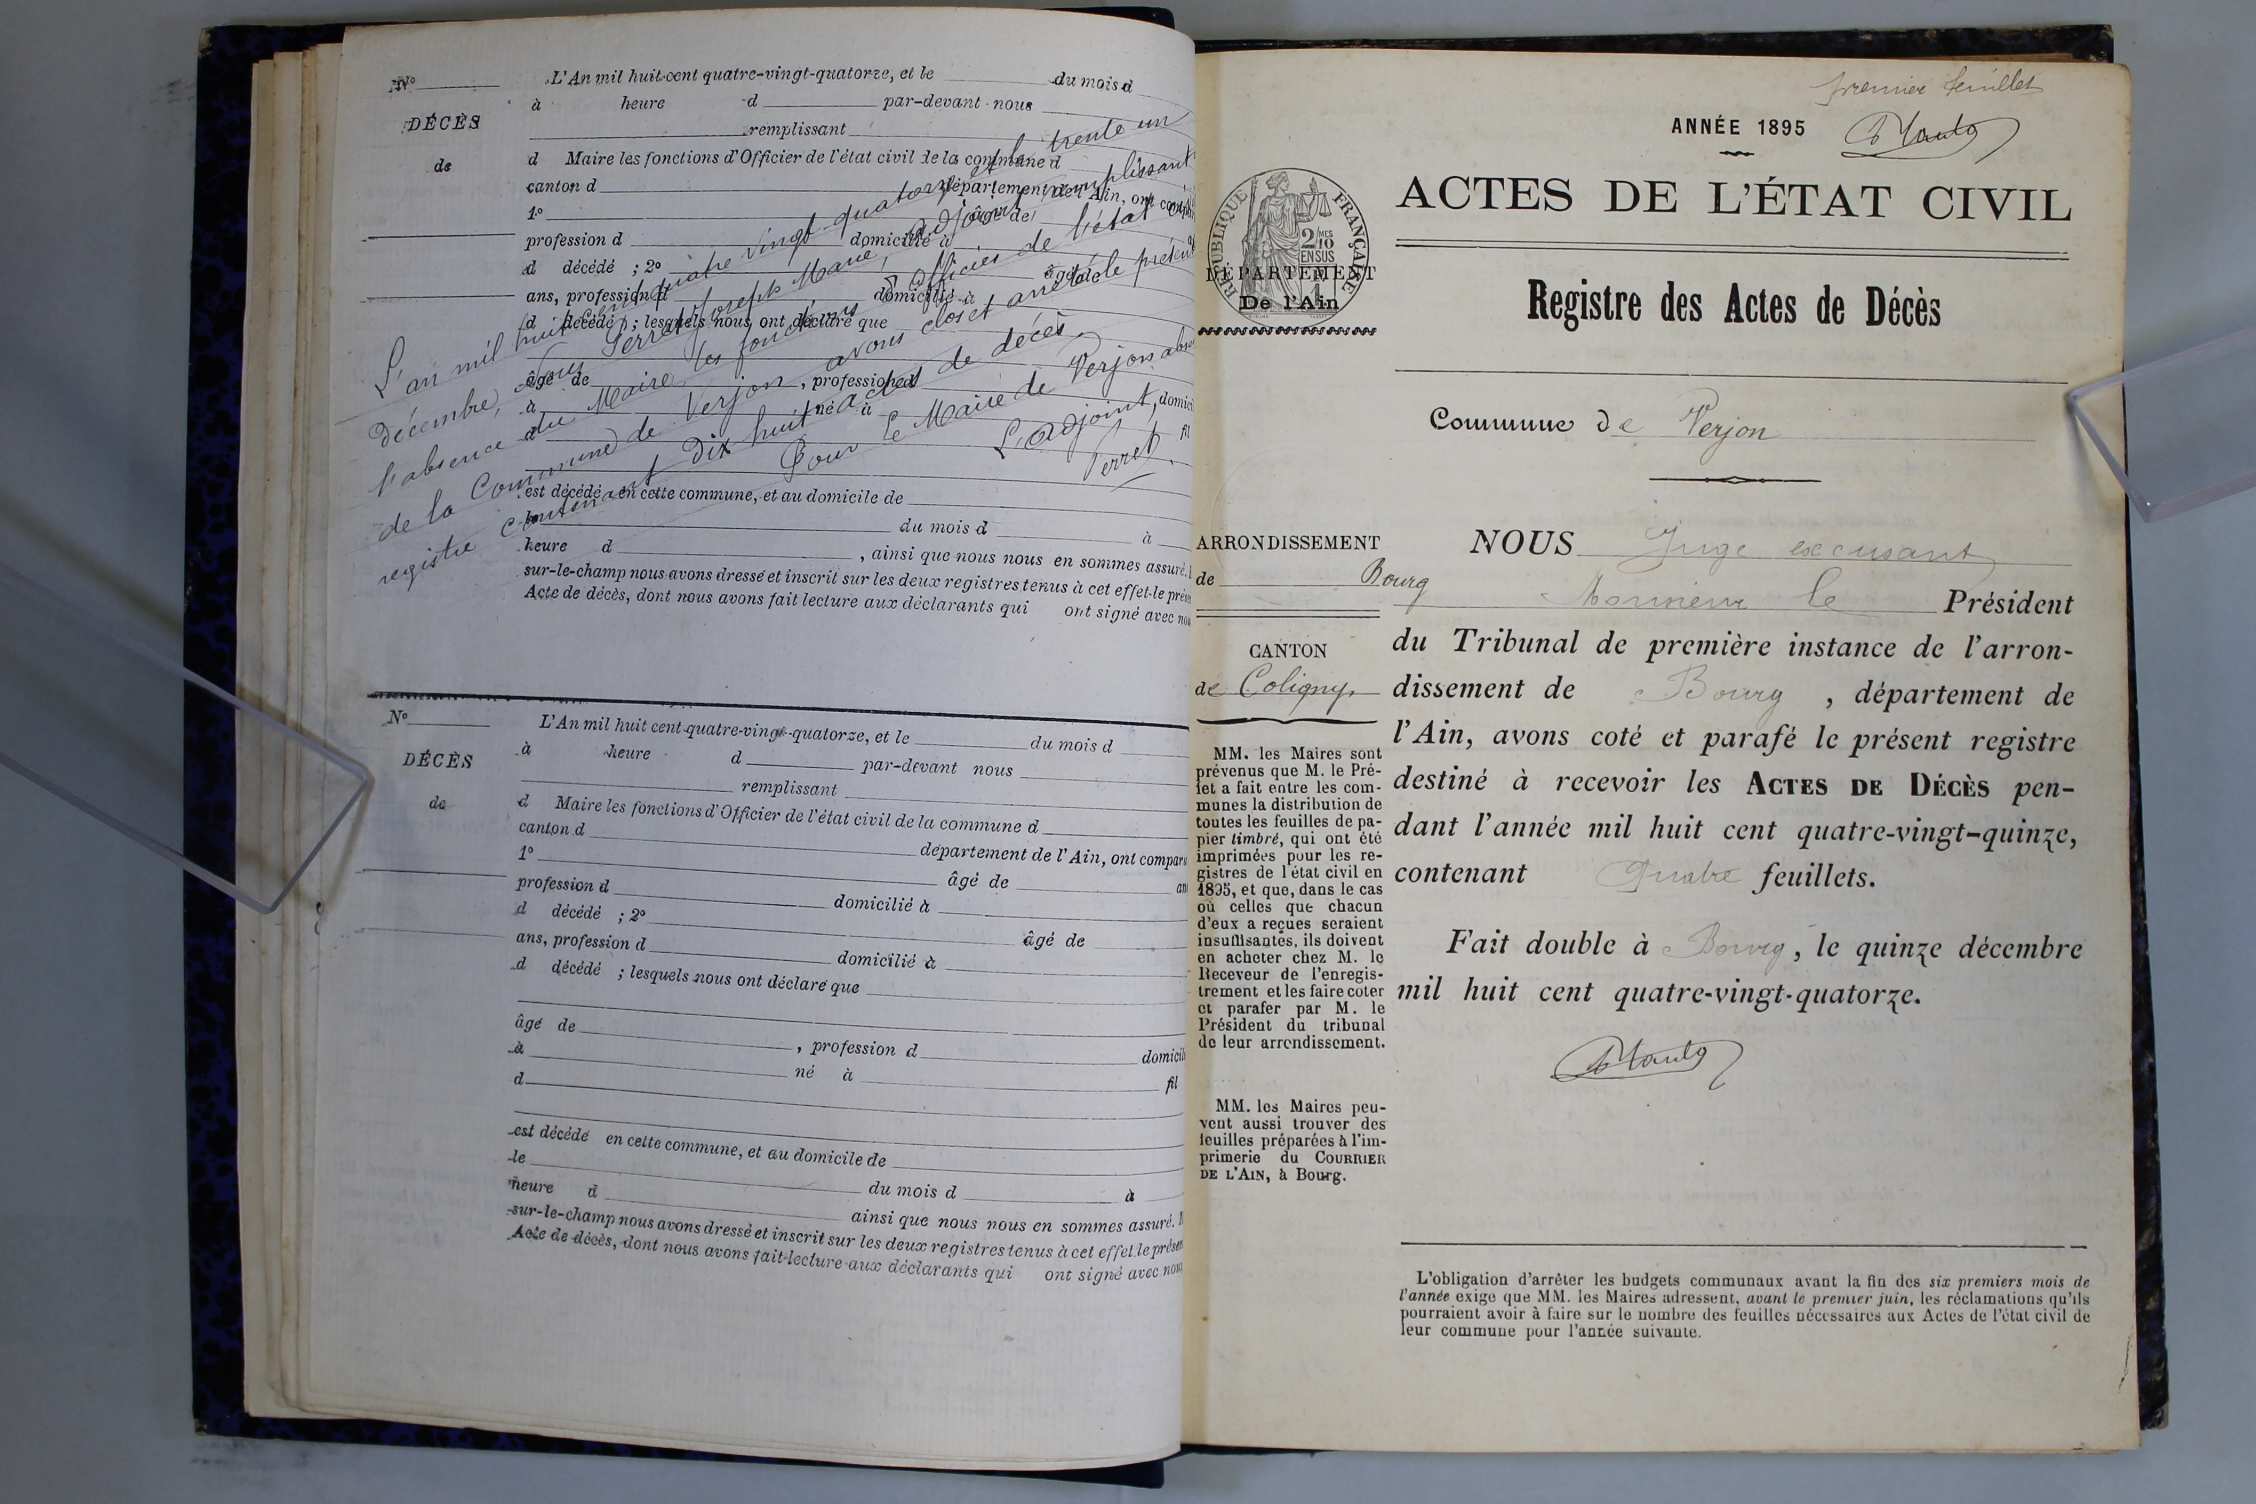 N°
L'An mil huit cent quatre-vingt-quatorze, et le du mois d
à heure d par-devant nous
DÉCÈS
remplissant
de
d Maire les fonctions d'Officier de l'état civil de la commune d
canton d département de l'Ain, ont comparu
1° âgé de
profession d domicilié à
d décédé ; 2° âgé de
ans, profession d domicilié à
d décédé ; lesquels nous ont déclaré que
âgé de , profession d
à né à , domicil
d fil
est décédé en cette commune, et au domicile de
le du mois d à
heure d , ainsi que nous nous en sommes assuré.
sur-le-champ nous avons dressé et inscrit sur les deux registres tenus à cet effet le prése
Acte de décès, dont nous avons fait lecture aux déclarants qui ont signé avec nou
L'an mil huit cent quatre vingt quatorze et le trente un
décembre, Nous Perret Joseph Marie, adjoint, remplissant
l'absence du Maire les fonctions d'officier de l'état civil
de la Commune de Verjon avons clos et arrêté le présent
registre contenant dix huit actes de décès.
Pour le Maire de Verjon abse
L'adjoint,
Perret
N°
L'An mil huit cent quatre-vingt-quatorze, et le du mois d
DÉCÈS
à heure d par-devant nous
remplissant
de
d Maire les fonctions d'Officier de l'état civil de la commune d
canton d département de l'Ain, ont comparu
1° âgé de an
profession d domicilié à
d décédé ; 2° âgé de
ans, profession d domicilié à
d décédé ; lesquels nous ont déclaré que
âgé de , profession d domicili
à né à
d fil
est décédé en cette commune, et au domicile de
le du mois d à
heure d ainsi que nous nous en sommes assuré.
sur-le-champ nous avons dressé et inscrit sur les deux registres tenus à cet effet le présen
Acte de décès, dont nous avons fait lecture aux déclarants qui ont signé avec nous
premier feuillet
ANNÉE 1895
ACTES DE L'ÉTAT CIVIL
RÉPUBLIQUE FRANÇAISE
2/10 MES
EN SUS
DÉPARTEMENT
De l'Ain
Registre des Actes de Décès
Commune de Verjon
ARRONDISSEMENT
de Bourg
CANTON
de Coligny
MM. les Maires sont
prévenus que M. le Pré-
fet a fait entre les com-
munes la distribution de
toutes les feuilles de pa-
pier timbré, qui ont été
imprimées pour les re-
gistres de l'état civil en
1895, et que, dans le cas
où celles que chacun
d'eux a reçues seraient
insuffisantes, ils doivent
en acheter chez M. le
Receveur de l'enregis-
trement et les faire coter
et parafer par M. le
Président du tribunal
de leur arrondissement.
MM. les Maires peu-
vent aussi trouver des
feuilles préparées à l'im-
primerie du COURRIER
DE L'AIN, à Bourg.
NOUS Juge excusant
Monsieur le Président
du Tribunal de première instance de l'arron-
dissement de Bourg , département de
l'Ain, avons coté et parafé le présent registre
destiné à recevoir les ACTES DE DÉCÈS pen-
dant l'année mil huit cent quatre-vingt-quinze,
contenant Quatre feuillets.
Fait double à Bourg, le quinze décembre
mil huit cent quatre-vingt-quatorze.
L'obligation d'arrêter les budgets communaux avant la fin des six premiers mois de
l'année exige que MM. les Maires adressent, avant le premier juin, les réclamations qu'ils
pourraient avoir à faire sur le nombre des feuilles nécessaires aux Actes de l'état civil de
leur commune pour l'année suivante.